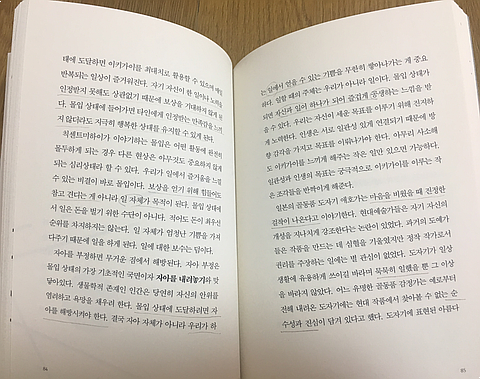 태에 도달하면 이키가이를 최대치로 활용할 수 있으며 매일
반복되는 일상이 즐거워진다. 자기 자신이 한 일이나 노력을
인정받지 못해도 상관없기 때문에 보상을 기대하지 않
다. 몰입 상태에 들어가면 타인에게 인정받는 만족감을 느끼
지 않더라도 지극히 행복한 상태를 유지할 수 있게 된다.
칙센트미하이가 이야기하는 몰입은 어떤 활동에 완전히
몰두하게 되는 경우 다른 현상은 아무것도 중요하지 않게
되는 심리상태라 할 수 있다. 우리가 일에서 즐거움을 느낄
수 있는 비결이 바로 몰입이다. 보상을 얻기 위해 힘들어도
참고 견디는 게 아니라 일 자체가 목적이 된다. 몰입 상태에
서 일은 돈을 벌기 위한 수단이 아니다. 적어도 돈이 최우선
순위를 차지하지는 않는다. 일 자체가 엄청난 기쁨을 가져
다주기 때문에 일을 하게 된다. 일에 대한 보수는 덤이다.
자아를 부정하면 무거운 짐에서 해방된다. 자아 부정은
몰입 상태의 가장 기초적인 국면이자 자아를 내려놓기와 맞
닿아있다. 생물학적 존재인 인간은 당연히 자신의 안위를
염려하고 욕망을 채우려 한다. 몰입 상태에 도달하려면 자
아를 해방시켜야 한다. 결국 자아 자체가 아니라 우리가 하
84
는 일에서 얻을 수 있는 기쁨을 무한히 쌓아나가는 게 중요
하다. 일할 때의 주체는 우리가 아니라 일이다. 몰입 상태가
되면 자신과 일이 하나가 되어 즐겁게 공생하는 느낌을 받
을 수 있다. 우리는 자신이 세운 목표를 이루기 위해 진지하
게 노력한다. 인생은 서로 일관성 있게 연결되기 때문에 방
향 감각을 가지고 목표를 이뤄나가야 한다. 아무리 사소해
도 이키가이를 느끼게 해주는 작은 일만 있으면 가능하다.
일관성과 인생의 목표는 궁극적으로 이키가이를 이루는 작
은 조각들을 반짝이게 해준다.
일본의 골동품 도자기 애호가는 마음을 비웠을 때 진정한
걸작이 나온다고 이야기한다. 현대예술가들은 자기 자신의
개성을 지나치게 강조한다는 논란이 있었다. 과거의 도예가
들은 작품을 만드는 데 심혈을 기울였지만 정작 작가로서
권리를 주장하는 일에는 별 관심이 없었다. 도자기가 일상
생활에 유용하게 쓰이길 바라며 묵묵히 일했을 뿐 그 이상
을 바라지 않았다. 어느 유명한 골동품 감정가는 예로부터
전해 내려온 도자기에는 현대 작품에서 찾아볼 수 없는 순
수성과 진심이 담겨 있다고 했다. 도자기에 표현된 아름다
85